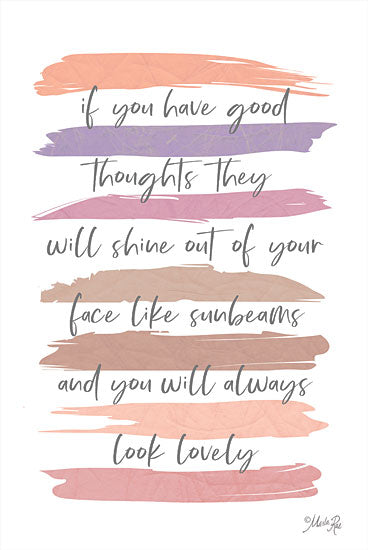 if you have good
thoughts they
will shine out of your
face like sunbeams
and you will always
look lovely
Marla Rae